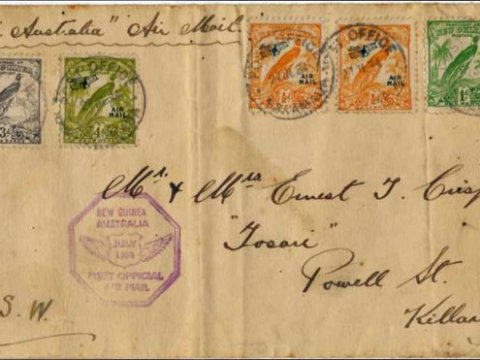 Australia" Air Mail.
POST OFFICE
AIR MAIL
AIR MAIL
AIR MAIL
NEW GUINEA
3d
Mr. & Mrs Ernest T. Crisp
"Tosari"
Powell St.
Killar
NEW GUINEA
AUSTRALIA
JULY
1934
FIRST OFFICIAL
AIR MAIL
S.W.